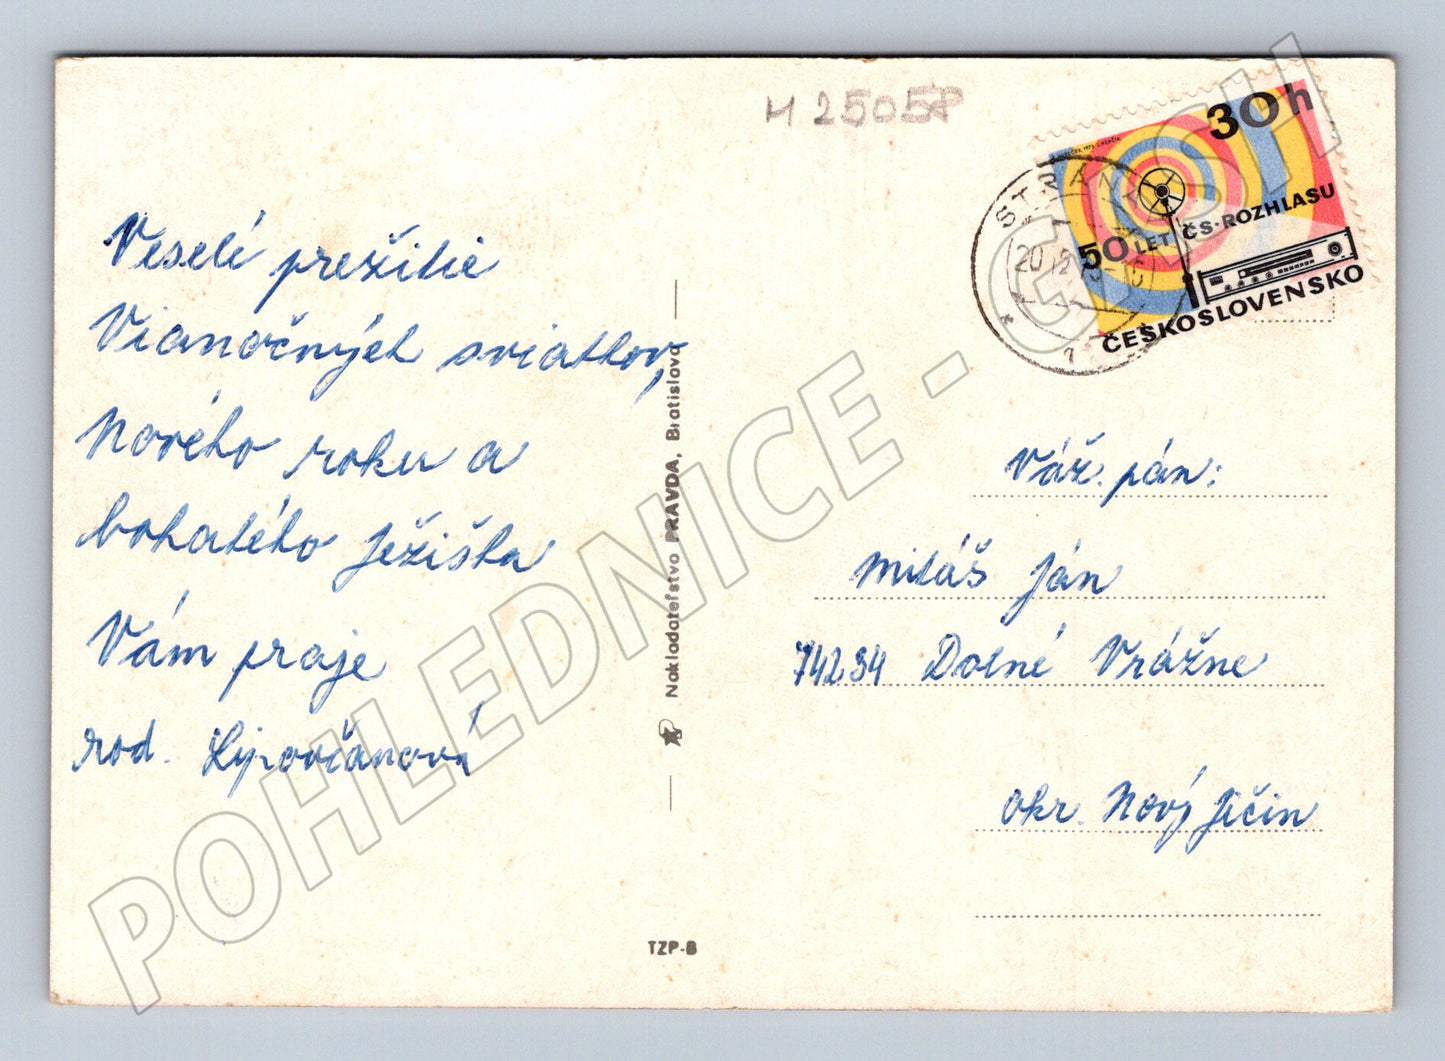 M 25058
30h
50 LET ČS·ROZHLASU
ČESKOSLOVENSKO
20 12
Veselé prežitie
Vianočných sviatkov,
Nového roku a
bohatého Ježiška
Vám praje
rod. Lipovčanová
Nakladateľstvo PRAVDA, Bratislava
TZP-8
Váž. pán:
Miláš Ján
74234 Dolné Vrážne
okr. Nový Jičin
POHLEDNICE - GUSH